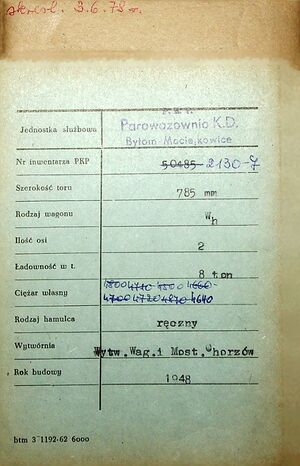 skreśl. 3.6.78 r.
P. K. P.
Jednostka służbowa Parowozownio K.D.
Bytom-Maciejkowice
Nr inwentarza PKP 50485 2130-7
Szerokość toru 785 mm
Rodzaj wagonu Wh
Ilość osi 2
Ładowność w t. 8 ton
4800 4710 4800 4660
Ciężar własny 4700 4720 4870 4640
Rodzaj hamulca ręczny
Wytwórnia Wytw.Wag.i Most.Chorzów
Rok budowy 1948
btm 3-1192-62 6000